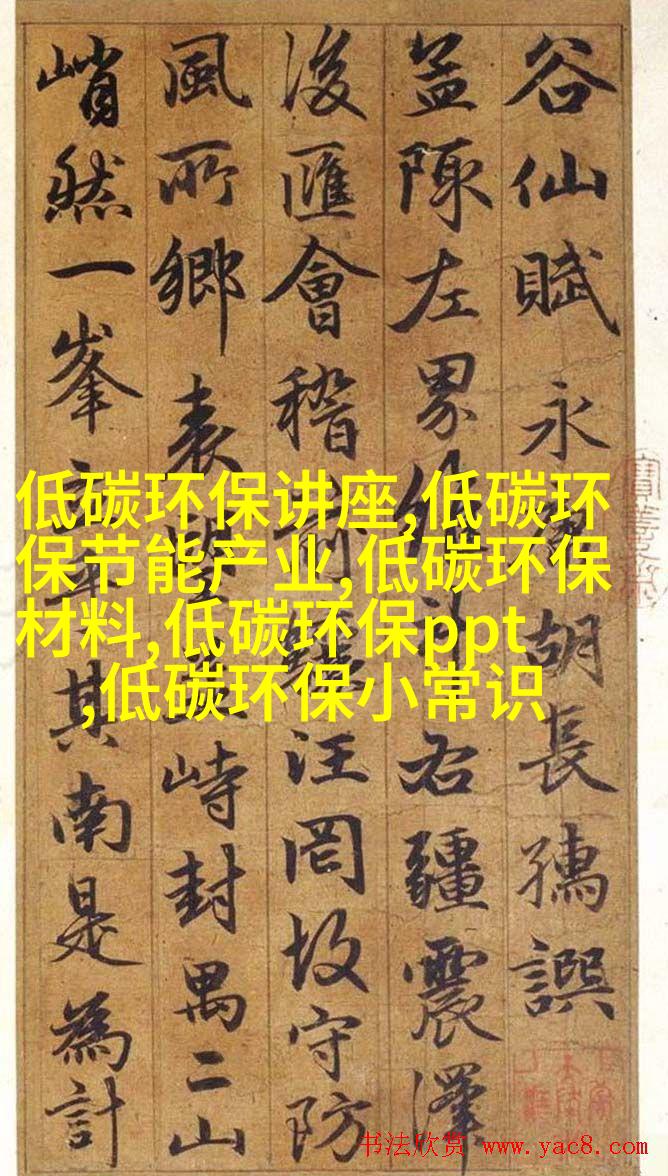 谷仙賦 永 胡長孺譔
陬左界 右疆震澤
後匯會稽前 汪罔故守防
風所鄉表 峙封禺二山
峭然一峯 其南是為計
低碳环保讲座,低碳环
保节能产业,低碳环保
材料,低碳环保ppt
,低碳环保小常识
书法欣赏 www.yac8.com